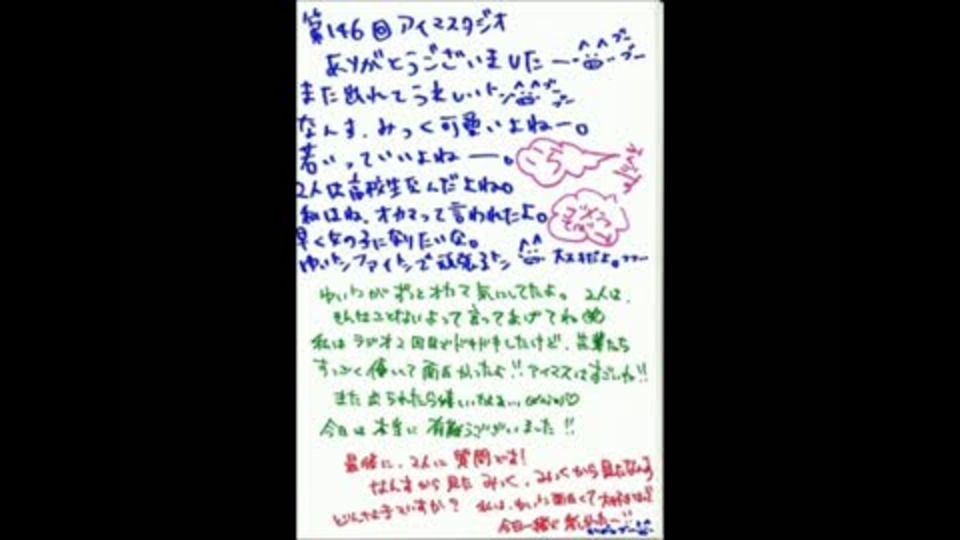 第146回アイマスタジオ
ありがとうございましたー ブーブー
また出れてうれしいトン ブーブー
なんす、みっく可愛いよねー。
若いっていいよねー。
2人は高校生なんだよね。
私はね、オカマって言われたよ。
早く女の子になりたいな。
ゆいトンファイトンで頑張るトン 大スキだよ。ブー
ゆいトンがずっとオカマ気にしてたよ。2人は、
そんなことないよって言ってあげてね
私はラジオ2回目でドキドキしたけど、先輩たち
すっごく優しくて面白かったよ!!アイマスはすごいね!!
また出られたら嬉しいなぁ…♡
今日は本当に有難うございました!!
最後に、2人に質問です!
なんすから見たみっく、みっくから見たなんす
どんな子ですか? 私は、ゆいトン面白くて大好き
今日一緒で楽しかったー!!